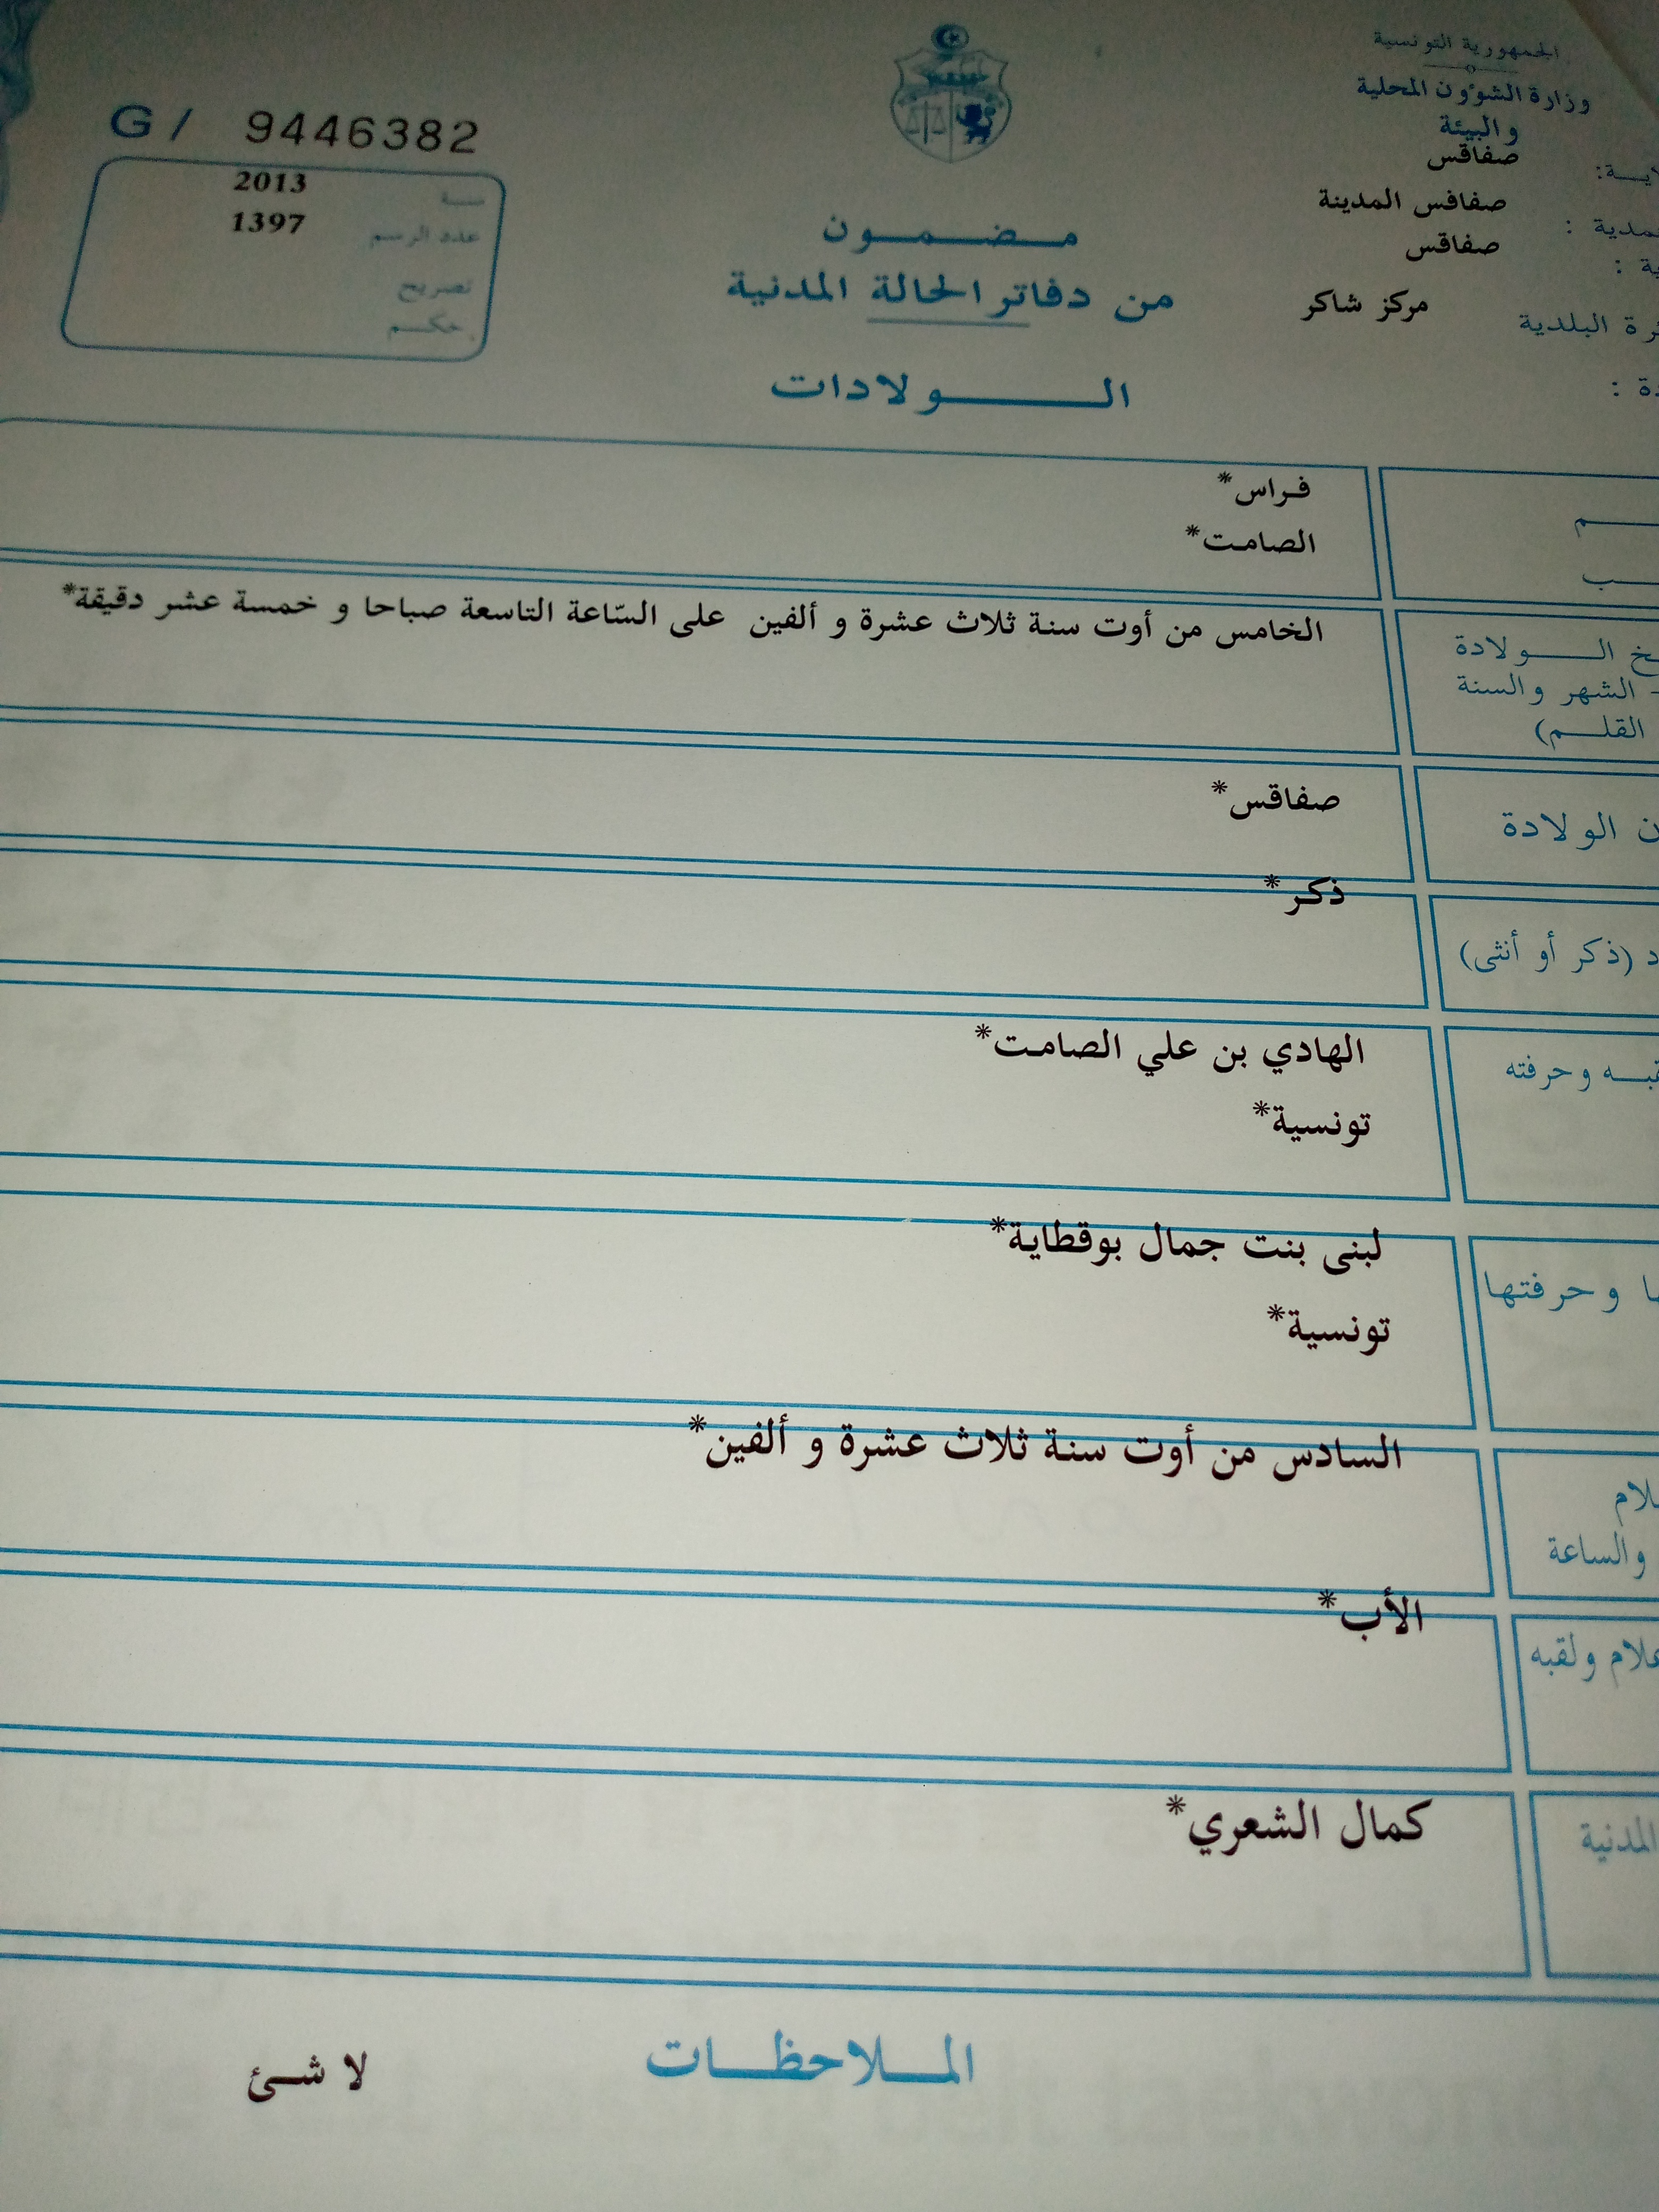 الجمهورية التونسية
وزارة الشؤون المحلية
والبيئة
صفاقس
صفاقس المدينة
صفاقس
البلدية مركز شاكر
G/ 9446382
سنة 2013
عدد الرسم 1397
تصريح
حكم
مضمون
من دفاتر الحالة المدنية
الولادات
فراس*
الصامت*
الولادة
الشهر والسنة
القلم)
الخامس من أوت سنة ثلاث عشرة و ألفين على السّاعة التاسعة صباحا و خمسة عشر دقيقة*
الولادة
صفاقس*
(ذكر أو أنثى)
ذكر*
وحرفته
الهادي بن علي الصامت*
تونسية*
وحرفتها
لبنى بنت جمال بوقطاية*
تونسية*
والساعة
السادس من أوت سنة ثلاث عشرة و ألفين*
ولقبه
الأب*
المدنية
كمال الشعري*
الملاحظات
لا شئ